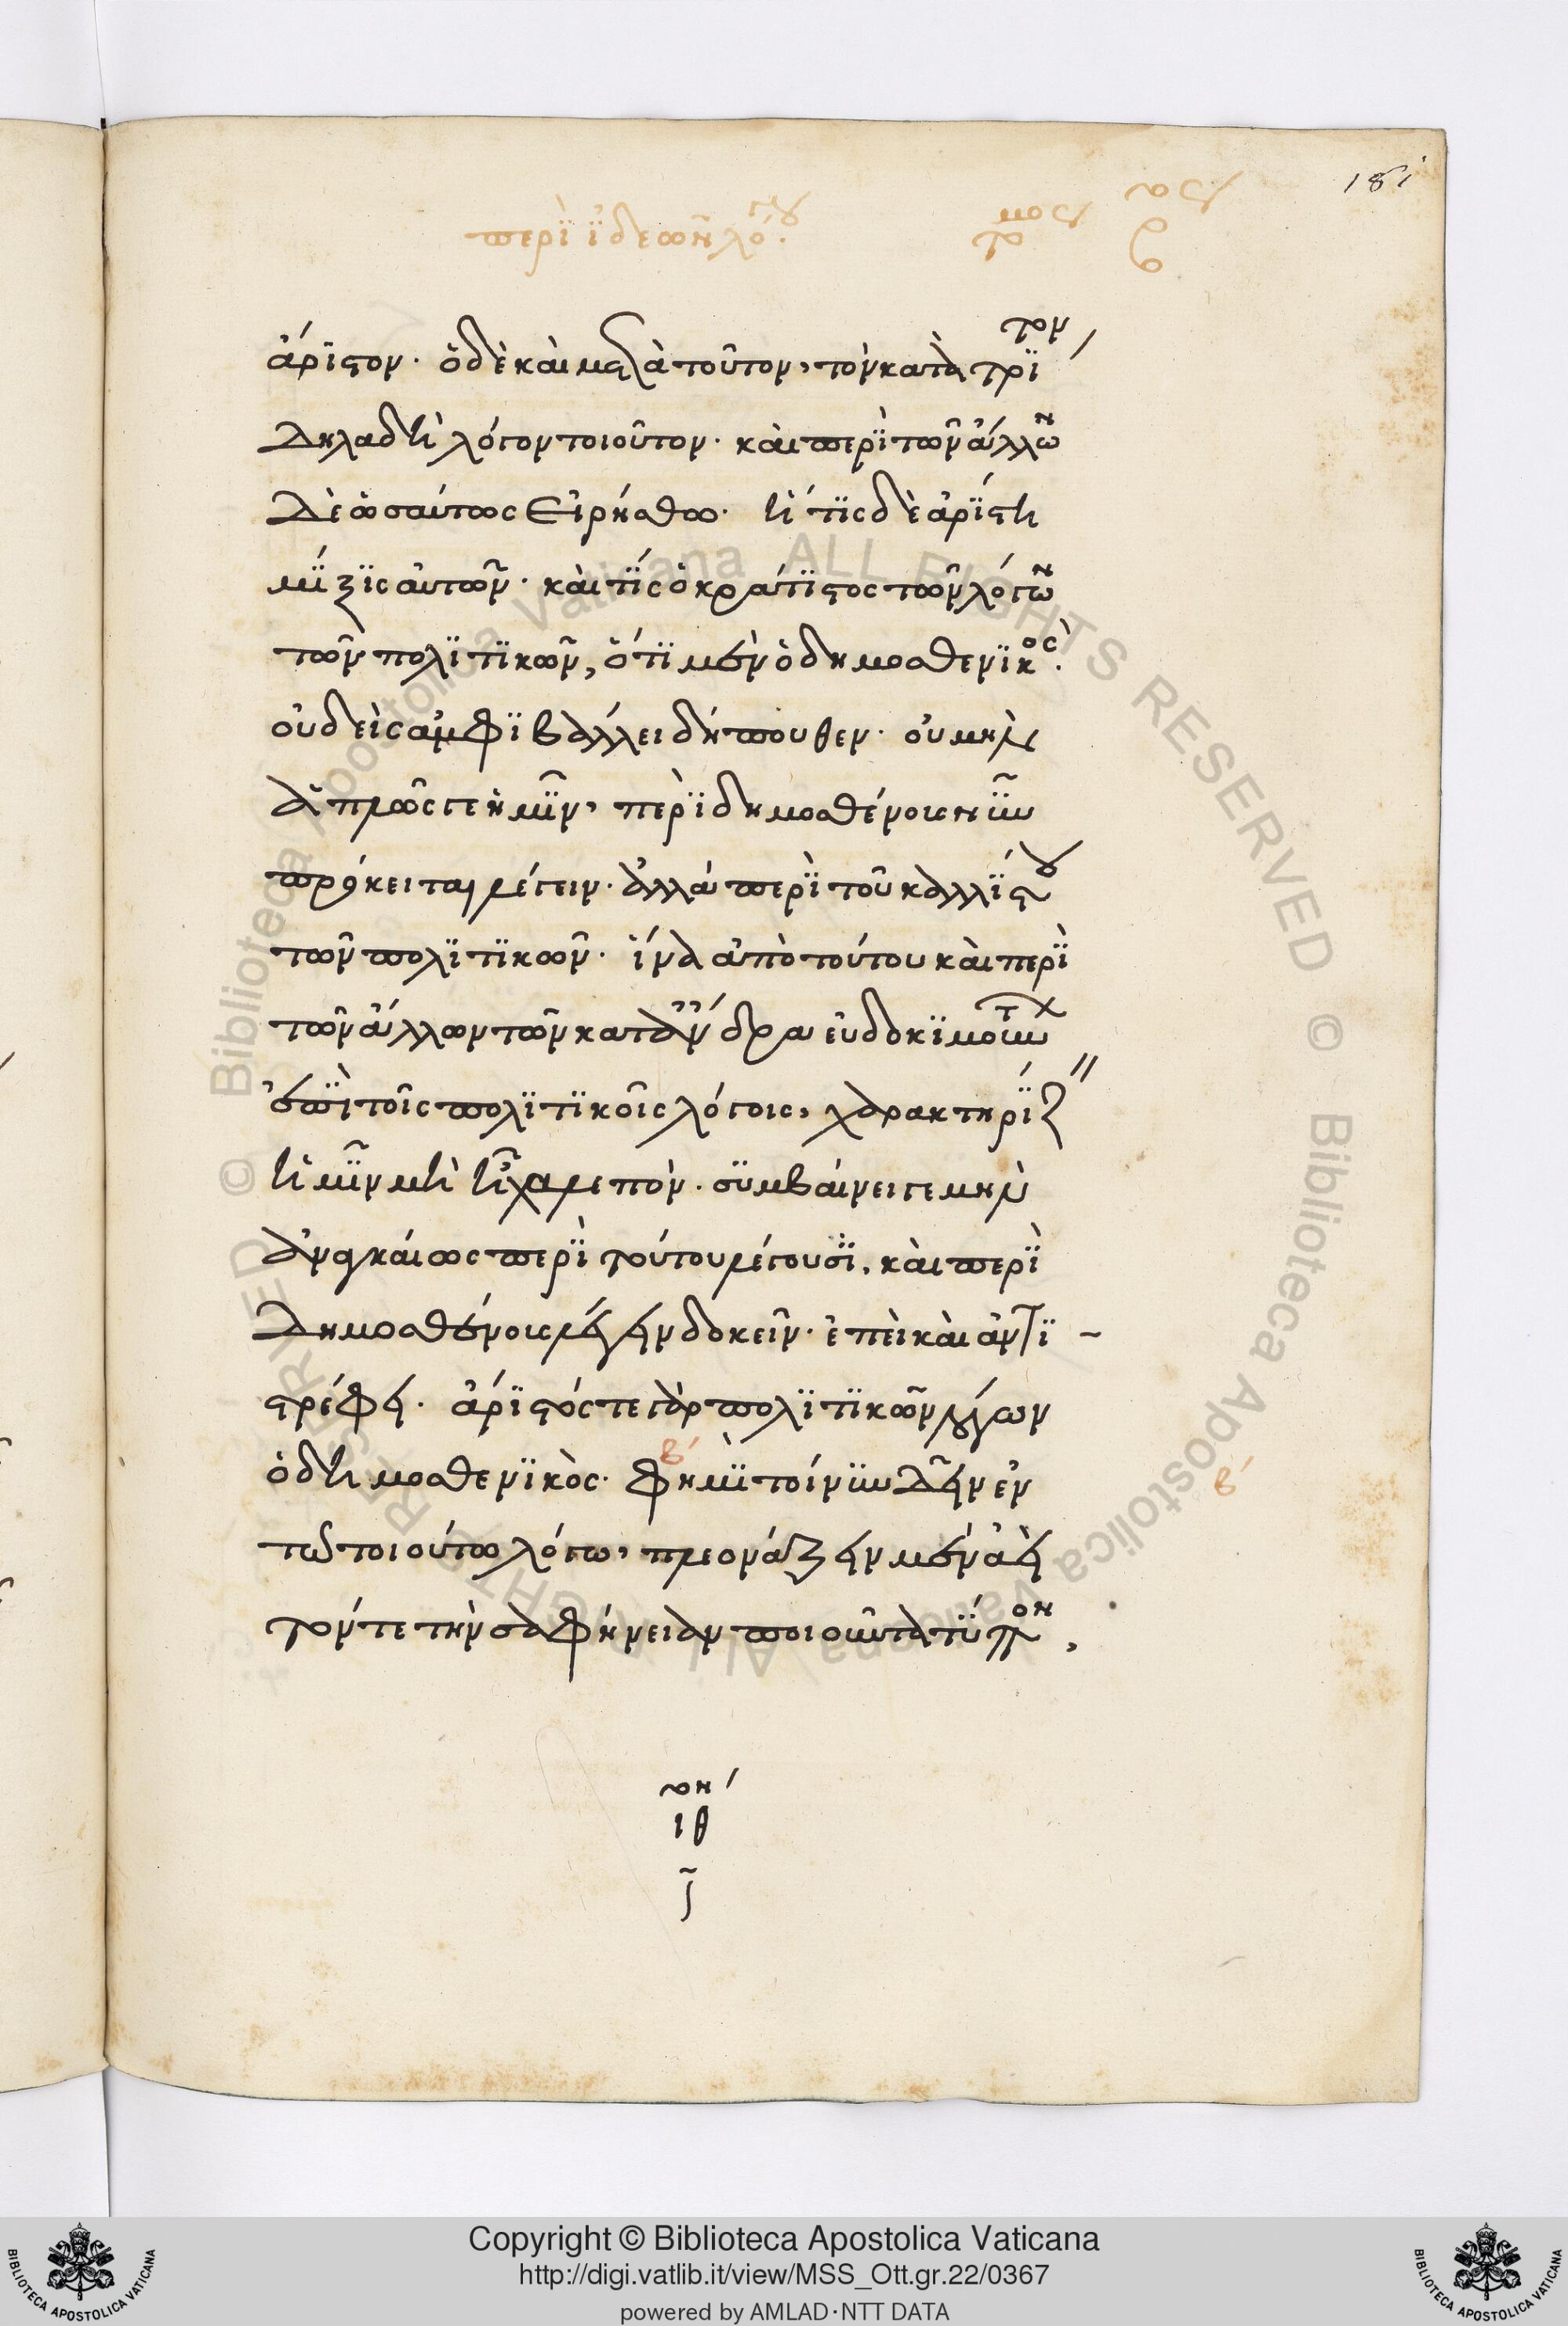 181
περὶ ἰδεῶν λόγου
τόμος
ἄριστον. ὁ δὲ καὶ μετὰ τοῦτον, τὸν κατὰ τρίτον
δηλαδὴ λόγον τοιοῦτον. καὶ περὶ τῶν ἄλλων
δὲ ὡσαύτως εἰρήσθω. ἡ τίς δὲ ἀρίστη
μίξις αὐτῶν. καὶ τίς ὁ κράτιστος τῶν λόγων
τῶν πολιτικῶν, ὅτι μὲν ὁ δημοσθενικός.
οὐδεὶς ἀμφιβάλλει δήπουθεν. οὐ μὴν
ἁπλῶς γε ἡμῖν, περὶ δημοσθένους νῦν
πρόκειται λέγειν. ἀλλὰ περὶ τοῦ καλλίστου
τῶν πολιτικῶν. ἵνα ἀπὸ τούτου καὶ περὶ
τῶν ἄλλων τῶν κατ' ἄνδρα εὐδοκιμούντων
ἐπὶ τοῖς πολιτικοῖς λόγοις, χαρακτηρίζειν
ἡμῖν μὴ ᾖ χαλεπόν. συμβαίνει γε μὴν
ἀναγκαίως περὶ τούτου λέγουσι, καὶ περὶ
δημοσθένους λέγειν δοκεῖν. ἐπεὶ καὶ ἀντι-
στρέφει. ἄριστός τε γὰρ πολιτικῶν λόγων
ὁ δημοσθενικὸς. φημὶ τοίνυν δεῖν ἐν
τῷ τοιούτῳ λόγῳ, πλεονάζειν μὲν ἀεὶ
τόν τε τὴν σαφήνειαν ποιοῦντα τύπον,
β΄
β΄
ιθ